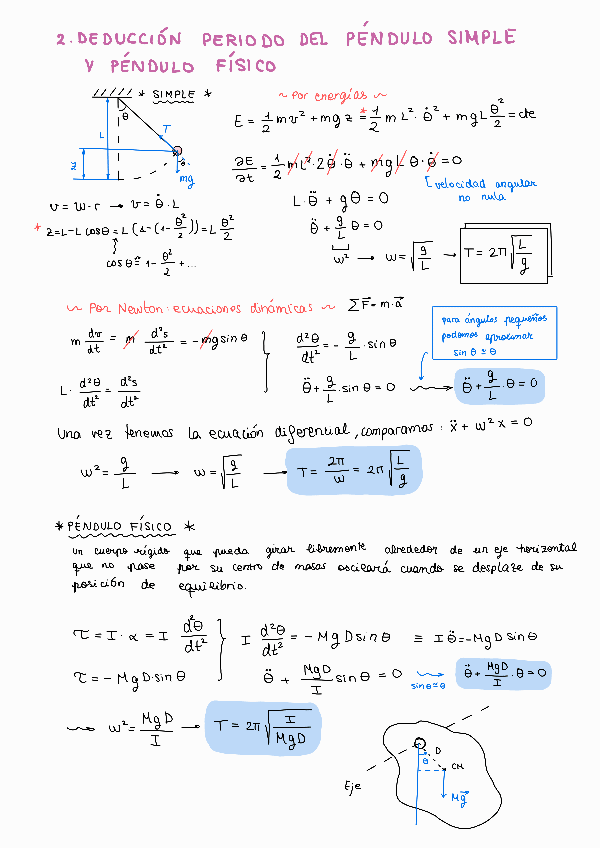 2. DEDUCCIÓN PERIODO DEL PÉNDULO SIMPLE
Y PÉNDULO FÍSICO
* SIMPLE *
θ
L
T
z
mg
~ Por energías ~
E = 1/2 mv² + mgz =* 1/2 m L² · θ̇² + mgL θ²/2 = cte
∂E/∂t = 1/2 mL² · 2θ̇ · θ̈ + mgLθ · θ̇ = 0
[velocidad angular
no nula
v = w · r → v = θ̇ · L
* z = L - L cosθ = L (1 - (1 - θ²/2)) = L θ²/2
cosθ ≅ 1 - θ²/2 + ...
L · θ̈ + gθ = 0
θ̈ + g/L θ = 0
w² → w = √(g/L) → T = 2π √(L/g)
~ Por Newton: ecuaciones dinámicas ~ ΣF⃗ = m·a⃗
m dv/dt = m d²s/dt² = -mg sin θ
L · d²θ/dt² = d²s/dt²
d²θ/dt² = - g/L · sin θ
θ̈ + g/L · sin θ = 0
para ángulos pequeños
podemos aproximar
sin θ ≅ θ
θ̈ + g/L · θ = 0
Una vez tenemos la ecuación diferencial, comparamos: ẍ + w² x = 0
w² = g/L → w = √(g/L) → T = 2π/w = 2π √(L/g)
* PÉNDULO FÍSICO *
un cuerpo rígido que pueda girar libremente alrededor de un eje horizontal
que no pase por su centro de masas oscilará cuando se desplaze de su
posición de equilibrio.
τ = I · α = I d²θ/dt²
τ = - MgD·sin θ
I d²θ/dt² = - MgD sin θ ≡ I θ̈ = -MgD sin θ
θ̈ + MgD/I sin θ = 0
sin θ ≅ θ
θ̈ + MgD/I · θ = 0
w² = MgD/I → T = 2π √(I/MgD)
Eje
D
θ
CM
Mg⃗